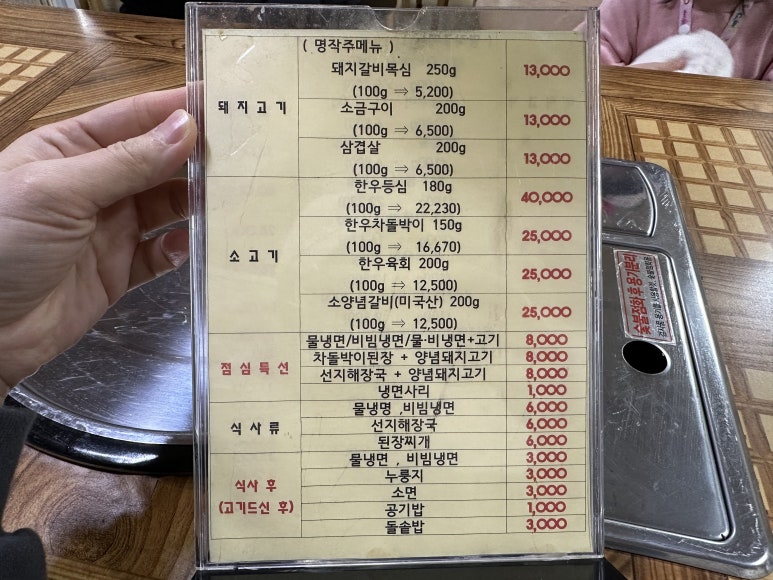 ( 명작주메뉴 )
돼지고기
돼지갈비목심 250g 13,000
(100g ⇒ 5,200)
소금구이 200g 13,000
(100g ⇒ 6,500)
삼겹살 200g 13,000
(100g ⇒ 6,500)
소고기
한우등심 180g 40,000
(100g ⇒ 22,230)
한우차돌박이 150g 25,000
(100g ⇒ 16,670)
한우육회 200g 25,000
(100g ⇒ 12,500)
소양념갈비(미국산) 200g 25,000
(100g ⇒ 12,500)
점심특선
물냉면/비빔냉면/물·비냉면+고기 8,000
차돌박이된장 + 양념돼지고기 8,000
선지해장국 + 양념돼지고기 8,000
냉면사리 1,000
식사류
물냉명 ,비빔냉면 6,000
선지해장국 6,000
된장찌개 6,000
식사 후
(고기드신 후)
물냉면 , 비빔냉면 3,000
누룽지 3,000
소면 3,000
공기밥 1,000
돌솥밥 3,000